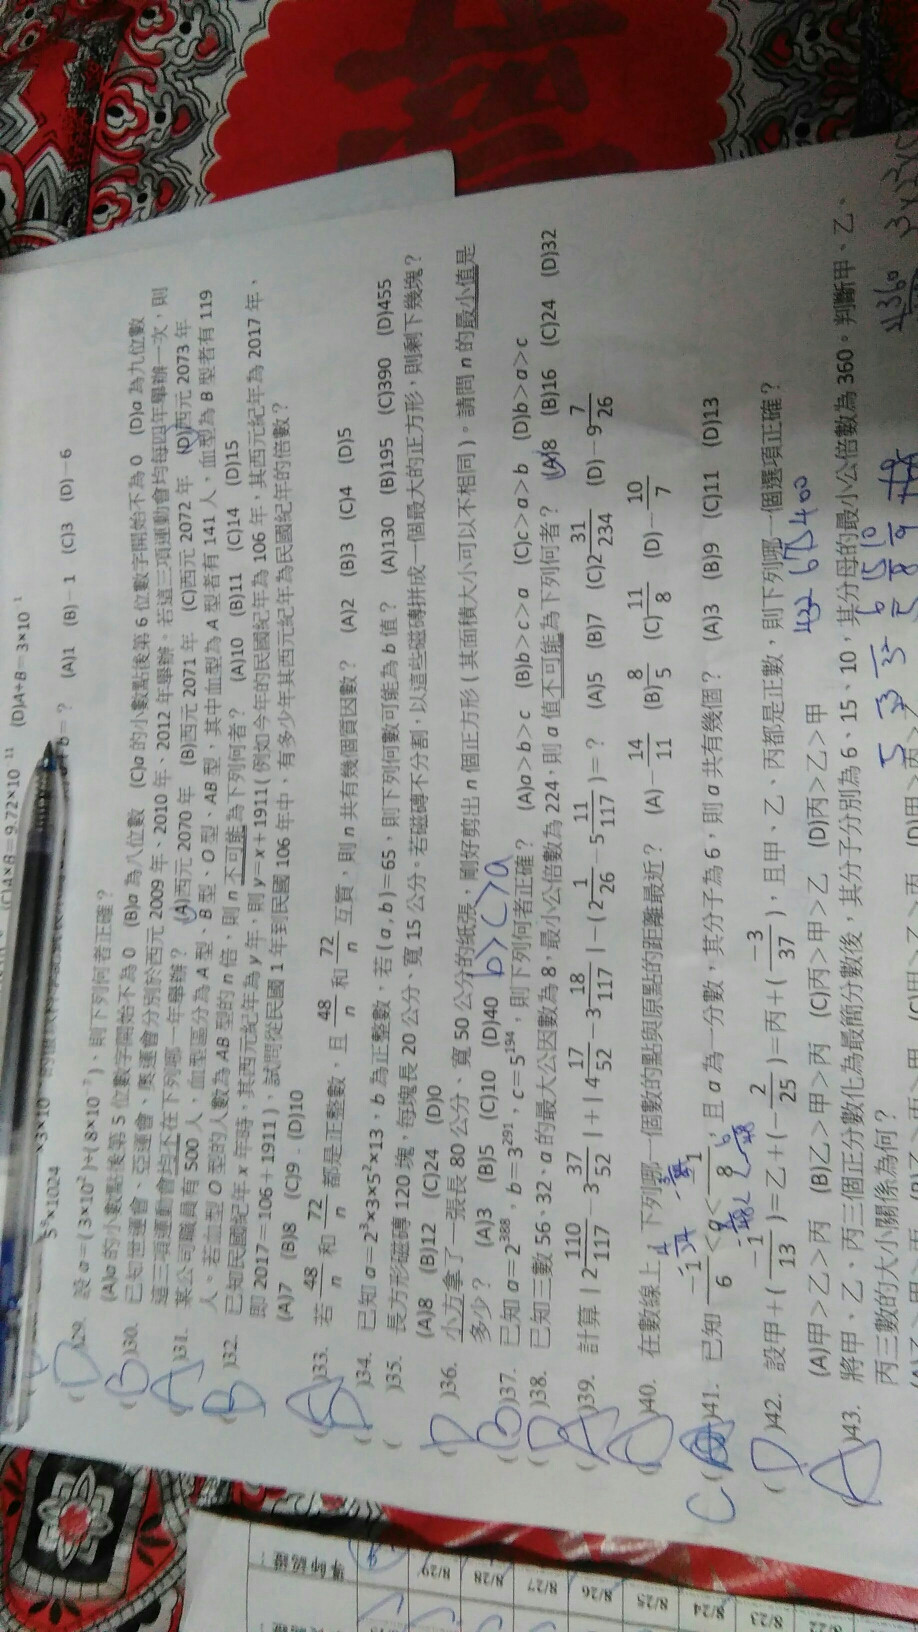 (C)4×8=9.72×10¹¹ (D)4+8=3×10
(A)1 (B)－1 (C)3 (D)－6
5⁹×1024
(D)29. 設 a=(3×10²)+(8×10⁻⁷)，則下列何者正確？
(A)a 的小數點後第 5 位數字開始不為 0 (B)a 為八位數 (C)a 的小數點後第 6 位數字開始不為 0 (D)a 為九位數
(B)30. 已知世運會、亞運會、奧運會分別於西元 2009 年、2010 年、2012 年舉辦。若這三項運動會均每四年舉辦一次，則
這三項運動會均不在下列哪一年舉辦？ (A)西元 2070 年 (B)西元 2071 年 (C)西元 2072 年 (D)西元 2073 年
(A)31. 某公司職員有 500 人，血型區分為 A 型、B 型、O 型、AB 型，其中血型為 A 型者有 141 人，血型為 B 型者有 119
人。若血型 O 型的人數為 AB 型的 n 倍，則 n 不可能為下列何者？ (A)10 (B)11 (C)14 (D)15
(B)32. 已知民國紀年 x 年時，其西元紀年為 y 年，則 y=x+1911(例如今年的民國紀年為 106 年，其西元紀年為 2017 年、
即 2017=106+1911)，試問從民國 1 年到民國 106 年中，有多少年其西元紀年為民國紀年的倍數？
(A)7 (B)8 (C)9 (D)10
(A)33. 若 48/n 和 72/n 都是正整數，且 48/n 和 72/n 互質，則 n 共有幾個質因數？ (A)2 (B)3 (C)4 (D)5
( )34. 已知 a=2³×3×5²×13，b 為正整數，若 (a, b)=65，則下列何數可能為 b 值？ (A)130 (B)195 (C)390 (D)455
( )35. 長方形磁磚 120 塊，每塊長 20 公分、寬 15 公分。若磁磚不分割，以這些磁磚拼成一個最大的正方形，則剩下幾塊？
(A)8 (B)12 (C)24 (D)0
(D)36. 小方拿了一張長 80 公分、寬 50 公分的紙張，剛好剪出 n 個正方形 ( 其面積大小可以不相同 )。請問 n 的最小值是
多少？ (A)3 (B)5 (C)10 (D)40
b>c>a
(B)37. 已知 a=2³⁸⁸，b=3²⁹¹，c=5¹⁹⁴，則下列何者正確？ (A)a>b>c (B)b>c>a (C)c>a>b (D)b>a>c
(D)38. 已知三數 56、32、a 的最大公因數為 8，最小公倍數為 224，則 a 值不可能為下列何者？ (A)8 (B)16 (C)24 (D)32
(A)39. 計算 | 2 110/117 － 3 37/52 | + | 4 17/52 － 3 18/117 | － ( 2 1/26 － 5 11/117 ) = ? (A)5 (B)7 (C)2 31/234 (D)－9 7/26
( )40. 在數線上，下列哪一個數的點與原點的距離最近？ (A)－14/11 (B)8/5 (C)11/8 (D)－10/7
C ( )41. 已知 －1/6 < a < －1/8，且 a 為一分數，其分子為 6，則 a 共有幾個？ (A)3 (B)9 (C)11 (D)13
(D)42. 設甲+(－1/13)=乙+(－2/25)=丙+(－3/37)，且甲、乙、丙都是正數，則下列哪一個選項正確？
(A)甲>乙>丙 (B)乙>甲>丙 (C)丙>甲>乙 (D)丙>乙>甲
(A)43. 將甲、乙、丙三個正分數化為最簡分數後，其分子分別為 6、15、10，其分母的最小公倍數為 360。判斷甲、乙、
丙三數的大小關係為何？